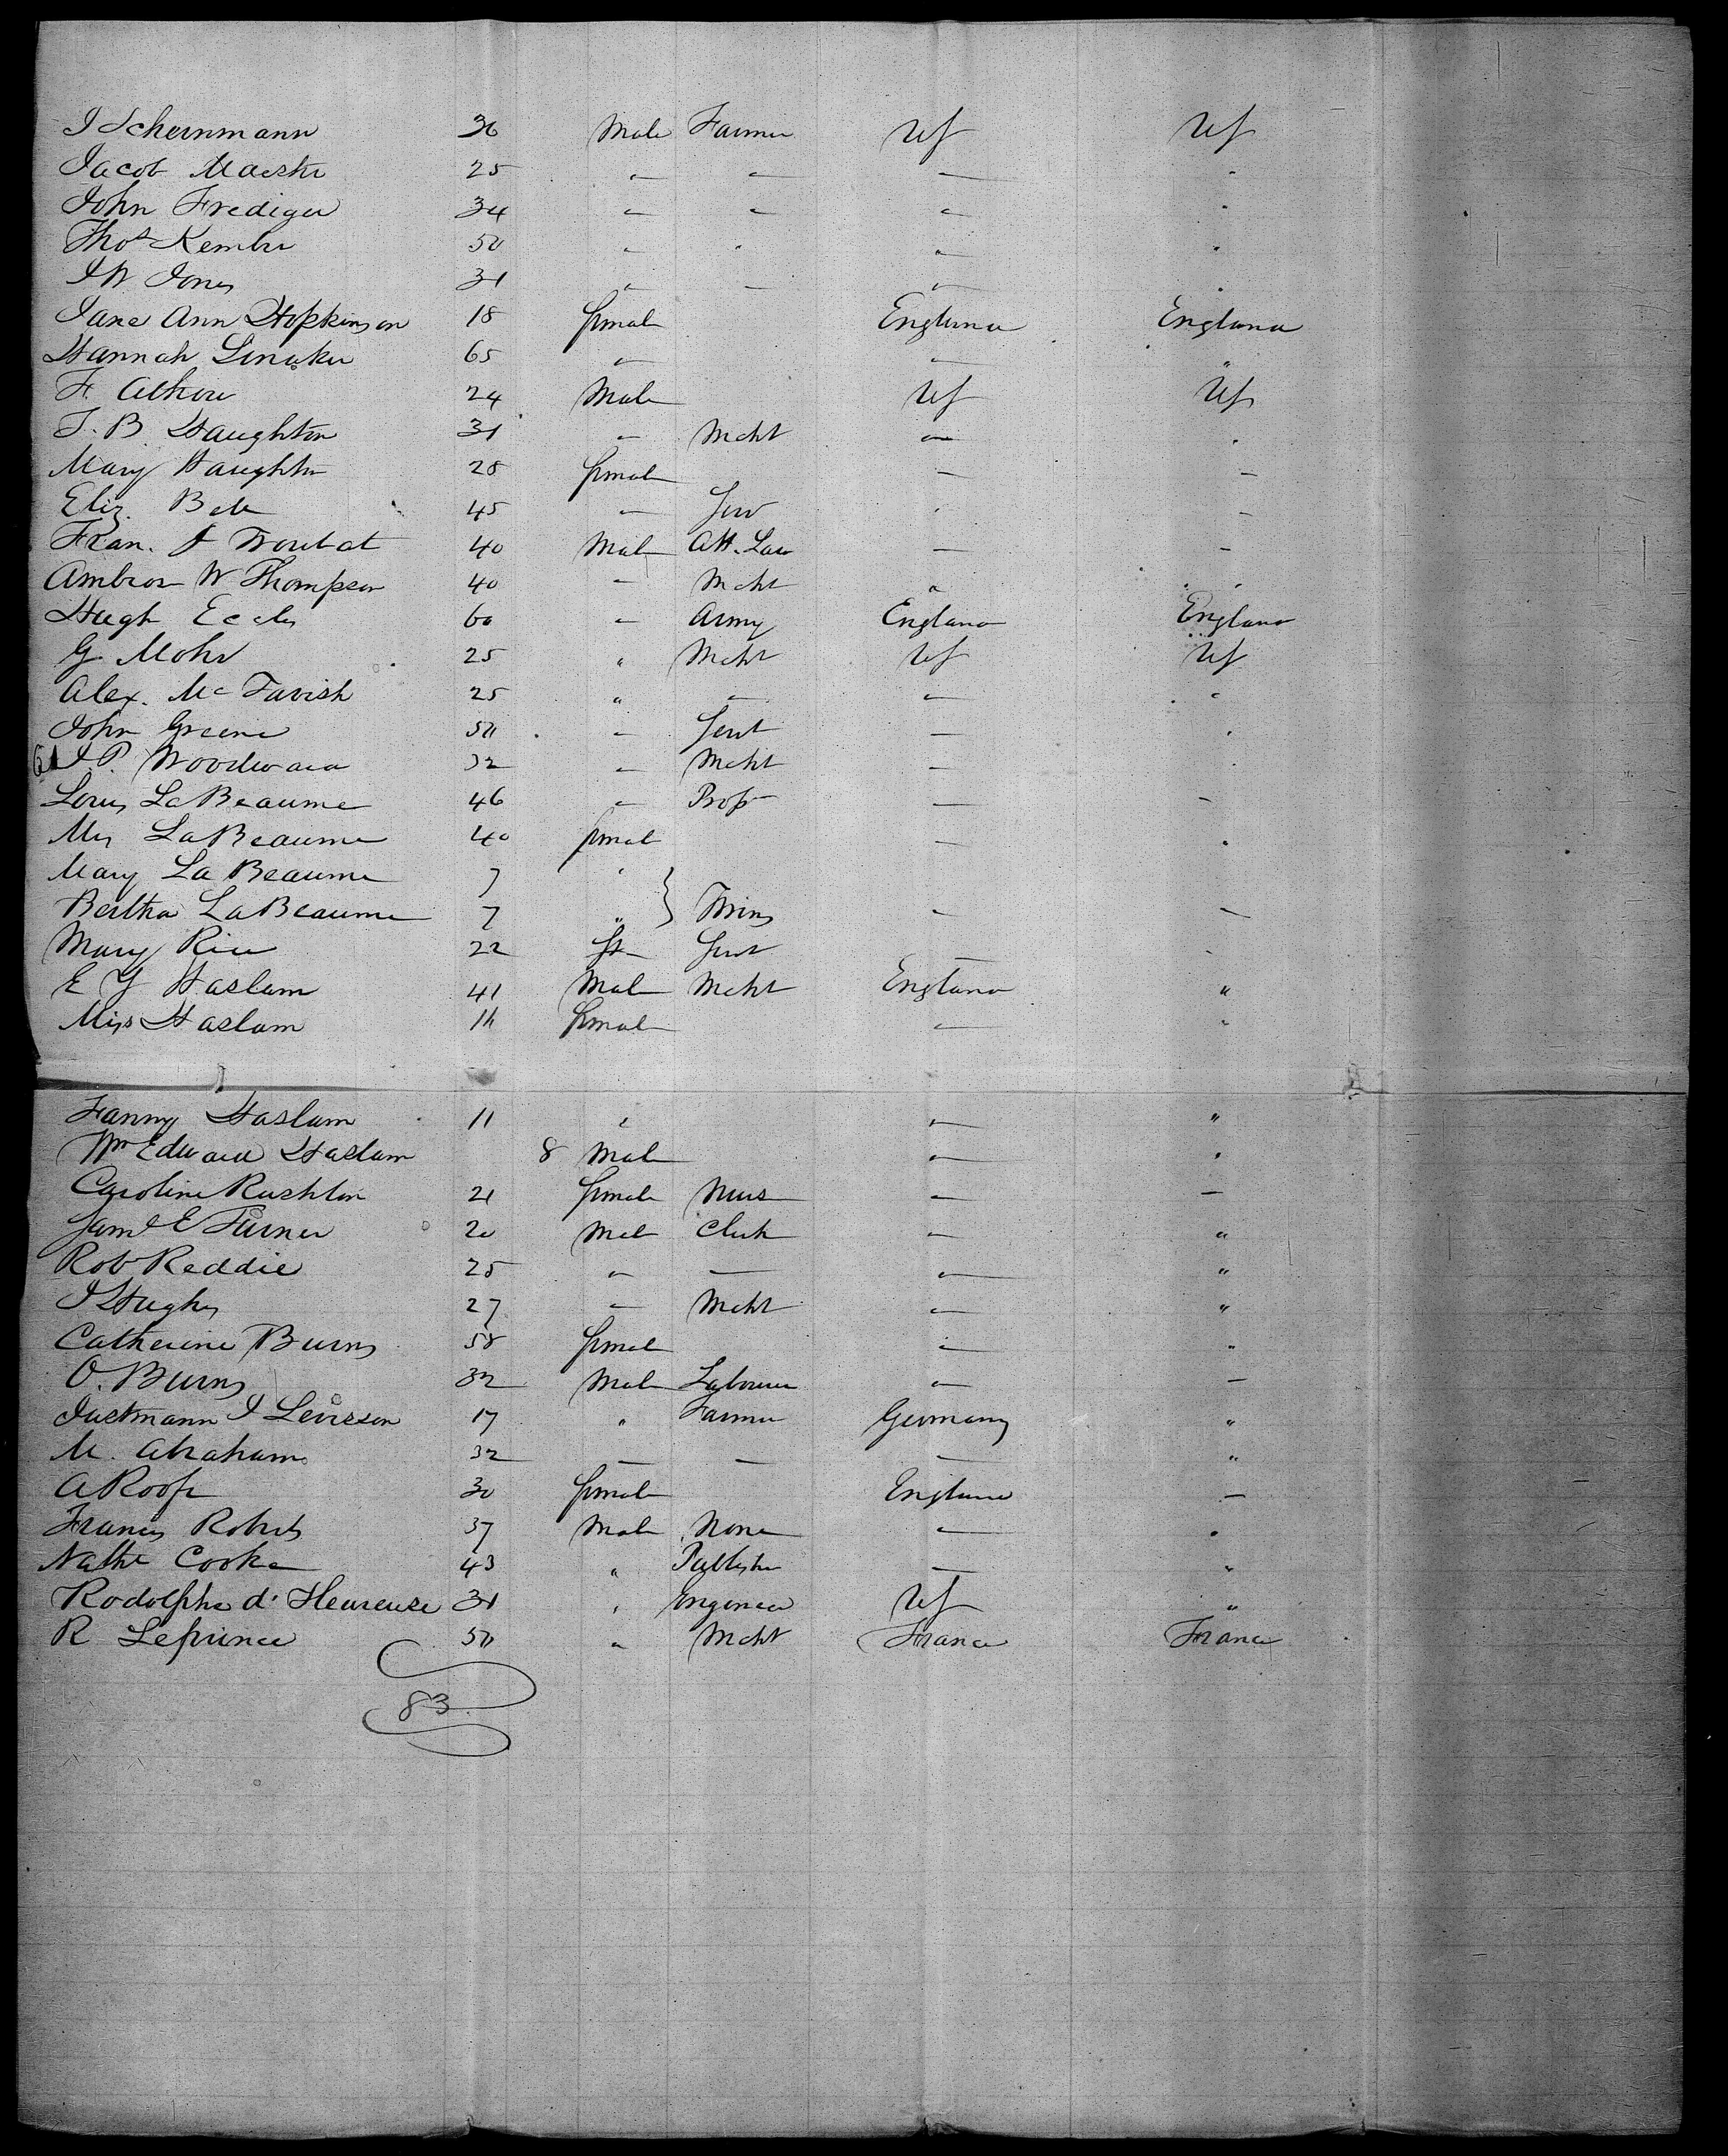 J Schernmann 36 Male Farmer US US
Jacob Maester 25 " " " "
John Frediger 34 " " " "
Thos Kember 50 " " " "
J W Jones 31 " " " "
Jane Ann Hopkinson 18 female England England
Hannah Linaker 65 " " "
F. 24 Male US US
T. B. Haughton 31 " Mcht " "
Mary Haughton 28 female " "
Eliz. Bell 45 " Serv " "
Fran. J Troubat 40 Male Att. Law " "
Ambrose W Thompson 40 " Mcht " "
Hugh Eccles 60 " Army England England
G Mohr 25 " Mcht US US
Alex. McTavish 25 " " " "
John Greene 50 " Gent " "
J. P. Woodward 32 " Mcht " "
Louis LaBeaume 46 " Prof " "
Mrs LaBeaume 40 female " "
Mary La Beaume 7 "
Bertha LaBeaume 7 " } Twins " "
Mary Rice 22 fe Sert " "
E Y Haslam 41 Male Mcht England "
Miss Haslam 14 female " "
Fanny Haslam 11 " " "
Wm Edward Haslam 8 Male " "
Caroline Rushton 21 female Nurs " "
Saml E Turner 20 Male Clerk " "
Rob Reddie 25 " " " "
J Hughes 27 " Mcht " "
Catherine Burns 58 female " "
O. Burns 32 Male Labourer " "
Justmann J Levisson 17 " Farmer Germany "
M. Abrahams 32 " " " "
A Roofe 30 female England "
Francis Roberts 37 Male None " "
Nathl Cooke 43 " Publisher " "
Rodolphe d'Heureuse 31 " Engineer US "
R Leprince 50 " Mcht France France
83